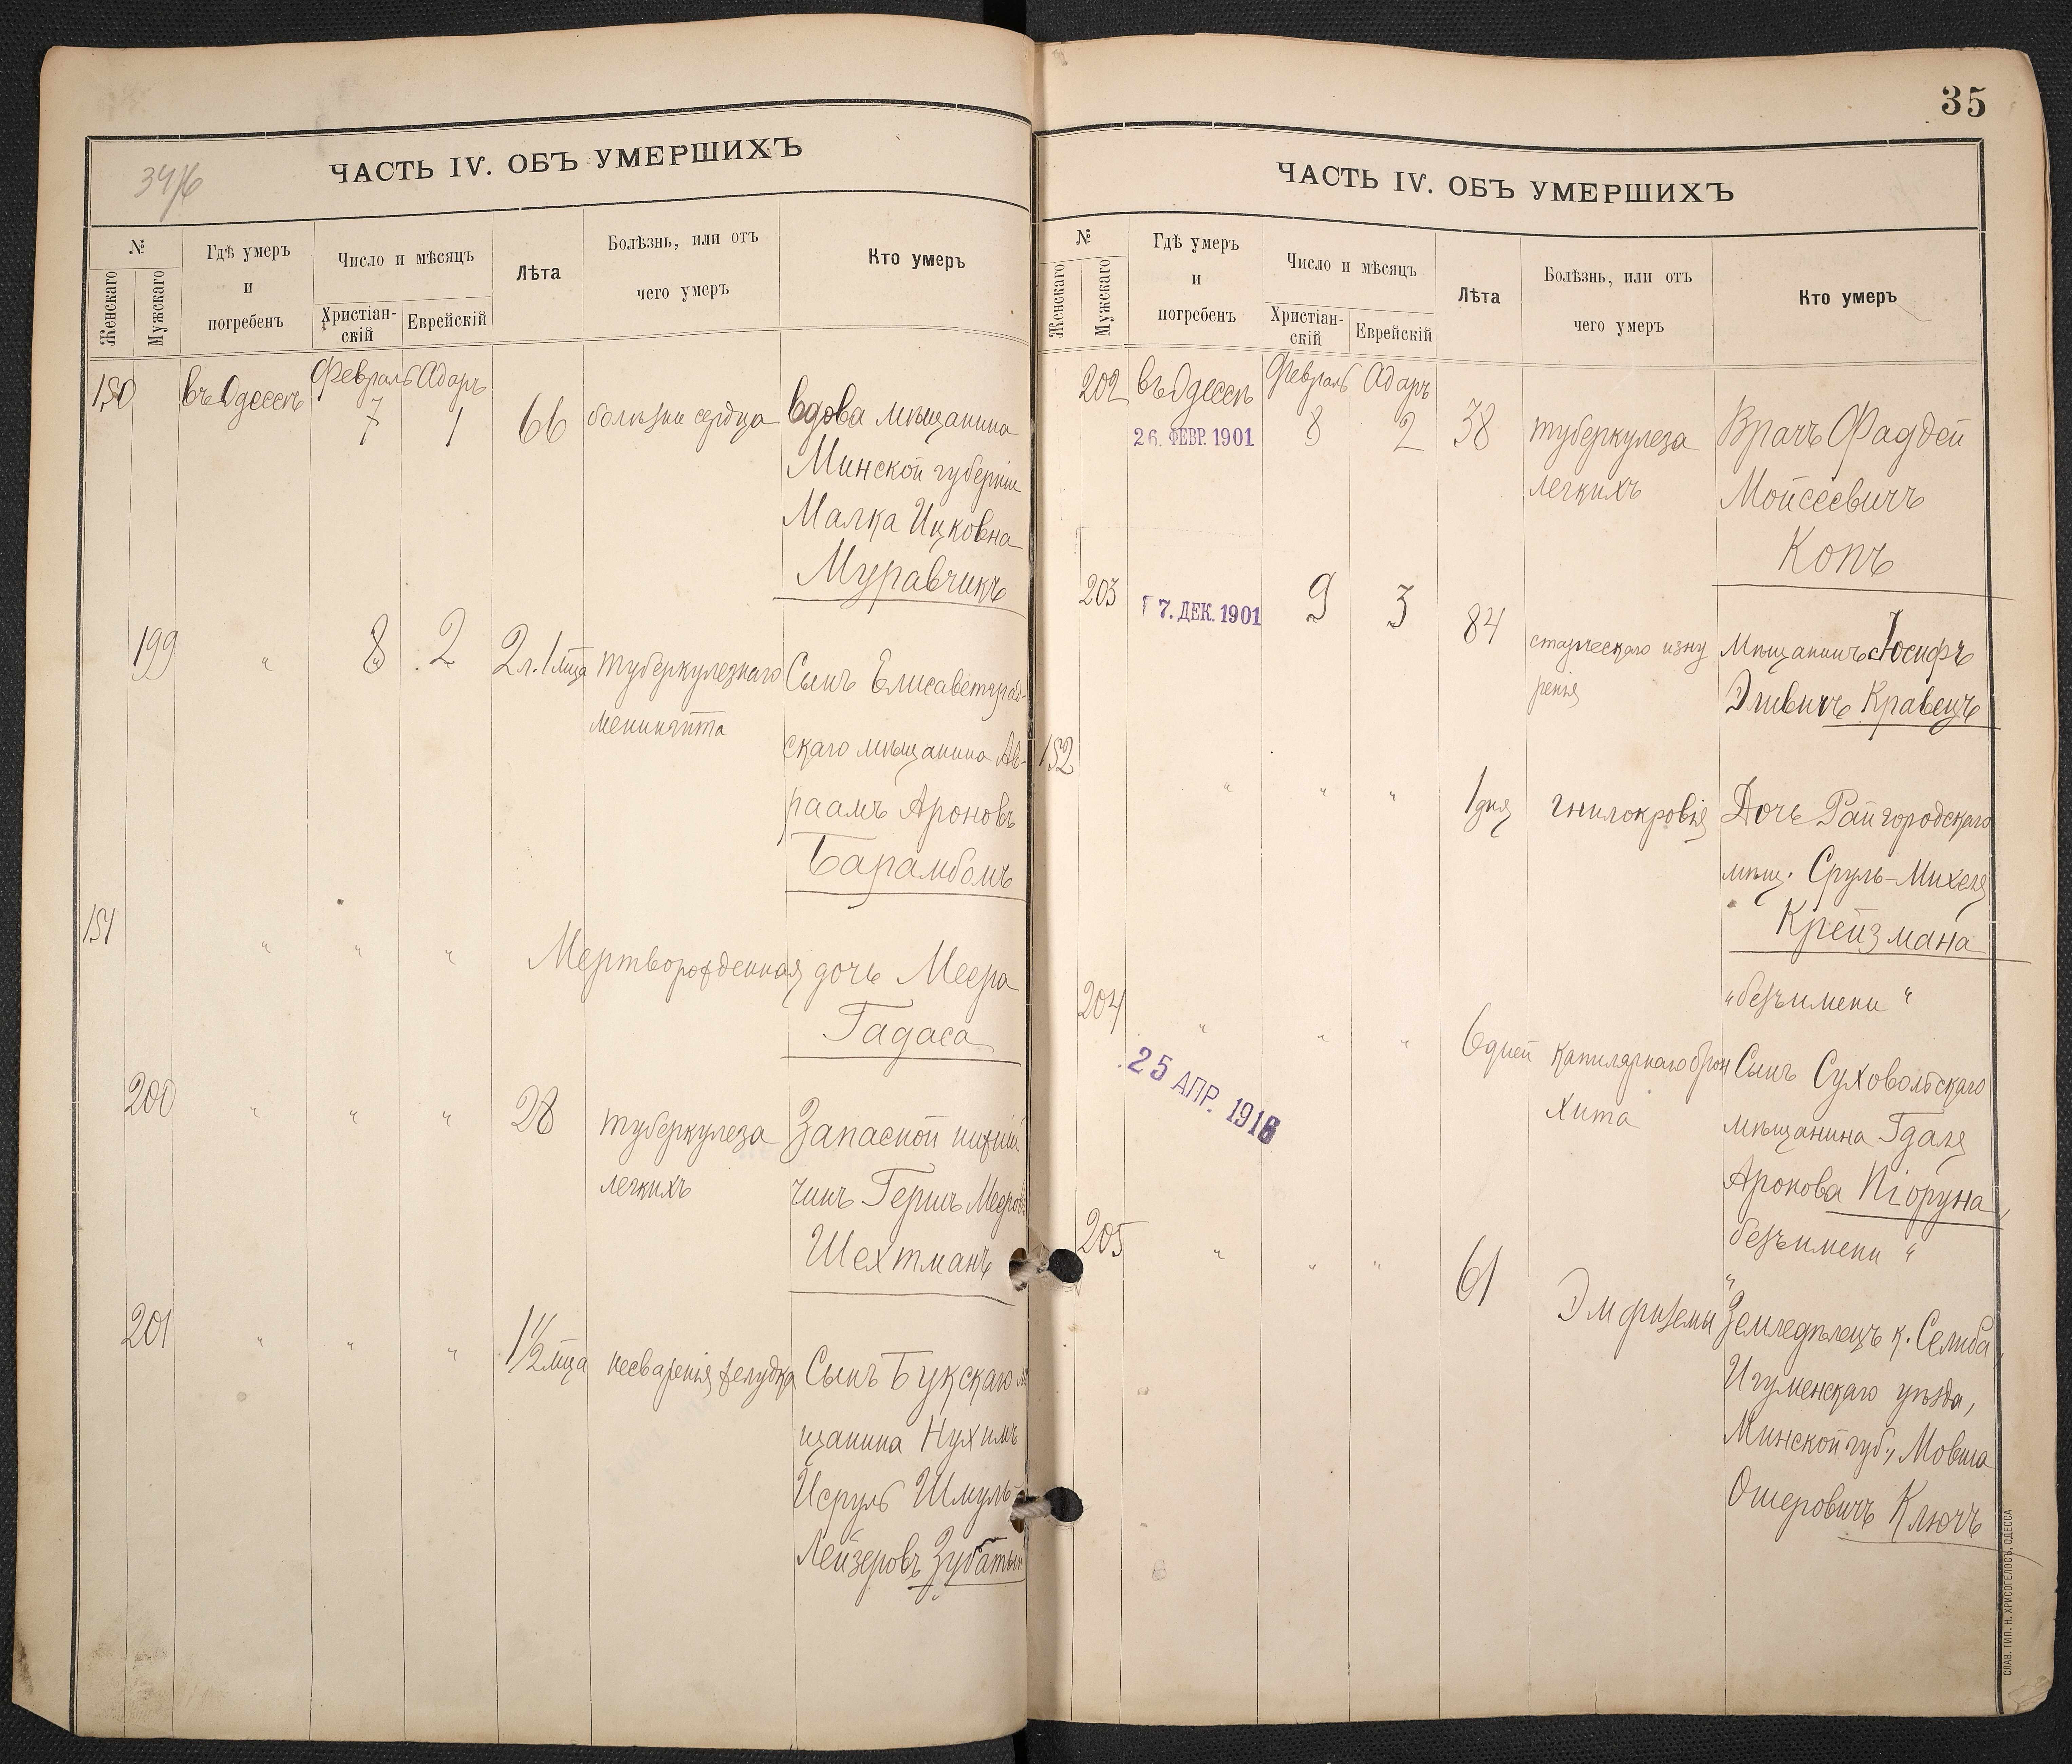 34/6
ЧАСТЬ IV. ОБЪ УМЕРШИХЪ
№
Женскаго
Мужскаго
Гдѣ умеръ
и
погребенъ
Число и мѣсяцъ
Христіан-
скій
Еврейскій
Лѣта
Болѣзнь, или отъ
чего умеръ
Кто умеръ
150 въ Одессѣ Февраль 7 Адаръ 1 66 болѣзни сердца Вдова мѣщанина
Минской губерніи
Малка Ицковна
Муравчикъ
199 " 8 2 2 л. 1 мца туберкулезнаго Сынъ Елисаветград-
менингита
скаго мѣщанина Ав-
раамъ Ароновъ
Барамбомъ
151 " " " Мертворожденная дочь Меера
Гадаса
200 " " " 28 туберкулеза Запасной нижній
легкихъ чинъ Гершъ Мееров
Шехтманъ
201 " " " 1 1/2 мца несваренія желудка Сынъ Букскаго м
щанина Нухимъ
Исруль Шмуль-
Лейзеровъ Зубатый
35
ЧАСТЬ IV. ОБЪ УМЕРШИХЪ
№
Женскаго
Мужскаго
Гдѣ умеръ
и
погребенъ
Число и мѣсяцъ
Христіан-
скій
Еврейскій
Лѣта
Болѣзнь, или отъ
чего умеръ
Кто умеръ
202 въ Одессѣ Февраль 8 Адаръ 2 38 туберкулеза Врачъ Фаддей
26. ФЕВР. 1901
легкихъ Мойсеевичъ
Копъ
203 9 3 84 старческаго изну Мѣщанинъ Іосифъ
7. ДЕК. 1901
ренія Эливичъ Кравецъ
152 " " " 1 дня гнилокровія Дочь Райгородскаго
мѣщ. Сруль-Михеля
Крейзмана
"безъимени"
204 " " " 6 дней капилярнаго брон Сынъ Суховольскаго
25 АПР. 1916
хита мѣщанина Гдаля
Аронова Піоруна
"безъимени"
205 " " " 61 Эмфиземы Земледѣлецъ к. Селиба,
Игуменскаго уѣзда,
Минской губ., Мовша
Ошеровичъ Ключъ
СЛАВ. ТИП. Н. ХРИСОГЕЛОСЪ, ОДЕССА